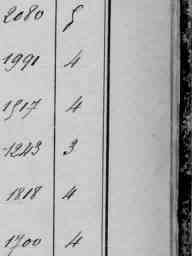 2080 5
1991 4
1517 4
1243 3
1818 4
1700 4